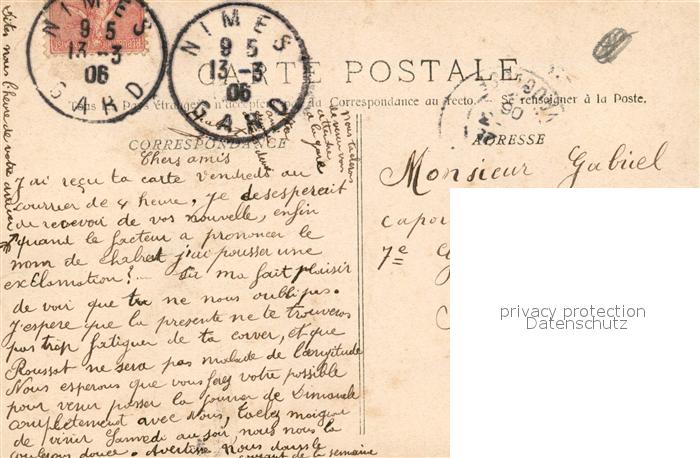 NIMES
9 5
13 - 3
06
GARD
NIMES
9 5
13 - 3
06
GARD
CARTE POSTALE
Tous les Pays étrangers n'acceptent pas la Correspondance au recto. Se renseigner à la Poste.
CORRESPONDANCE
ADRESSE
Monsieur Gabriel
7e
privacy protection
Datenschutz
Chers amis
J'ai reçu ta carte vendredi au
courrier de 4 heure, je desesperait
de recevoir de vos nouvelle, enfin
quand le facteur a prononcer le
nom de chabret j'ai pousser une
exclamation! Tu ma fait plaisir
de voir que tu ne nous oublie pas.
J'espere que la presente ne te trouveras
pas trop fatiguer de ta corver, et que
Roussat ne sera pas malade de
Nous esperons que vous ferez votre possible
pour venir passer la journer de Dimanche
complètement avec Nous,
de venir Samedi au soir, nous nous la
coulerons douce. nous dans le
courant de la semaine
Dites nous l'heure de votre arriver
nous
a la gare